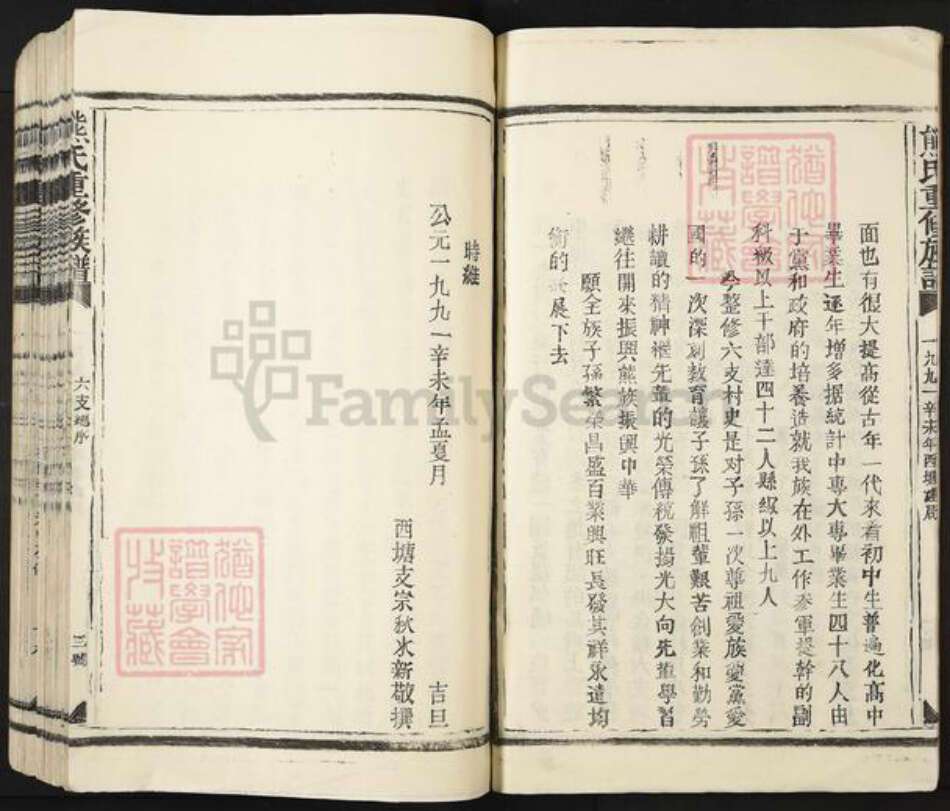 熊氏重修族譜
一九九一辛未年西塘
面也有很大提高從古年一代來看初中生普遍化高中
畢業生逐年增多据統計中專大專畢業生四十八人由
于黨和政府的培養造就我族在外工作參軍提幹的副
科級以上干部達四十二人縣級以上九人
今整修六支村史是对子孫一次尊祖愛族愛黨愛
國的一次深刻教育讓子孫了解祖輩艱苦創業和勤勞
耕讀的精神襟先輩的光榮傳統發揚光大向先輩學習
繼往開來振興熊族振興中華
願全族子孫繁榮昌盛百業興旺長發其祥永遠均
衡的發展下去
時維
公元一九九一辛未年孟夏月 吉旦
西塘支宗秋水新敬撰
熊氏重修族譜
六支總序
三號
猶他家
譜學會
收藏
猶他家
譜學會
收藏
FamilySearch